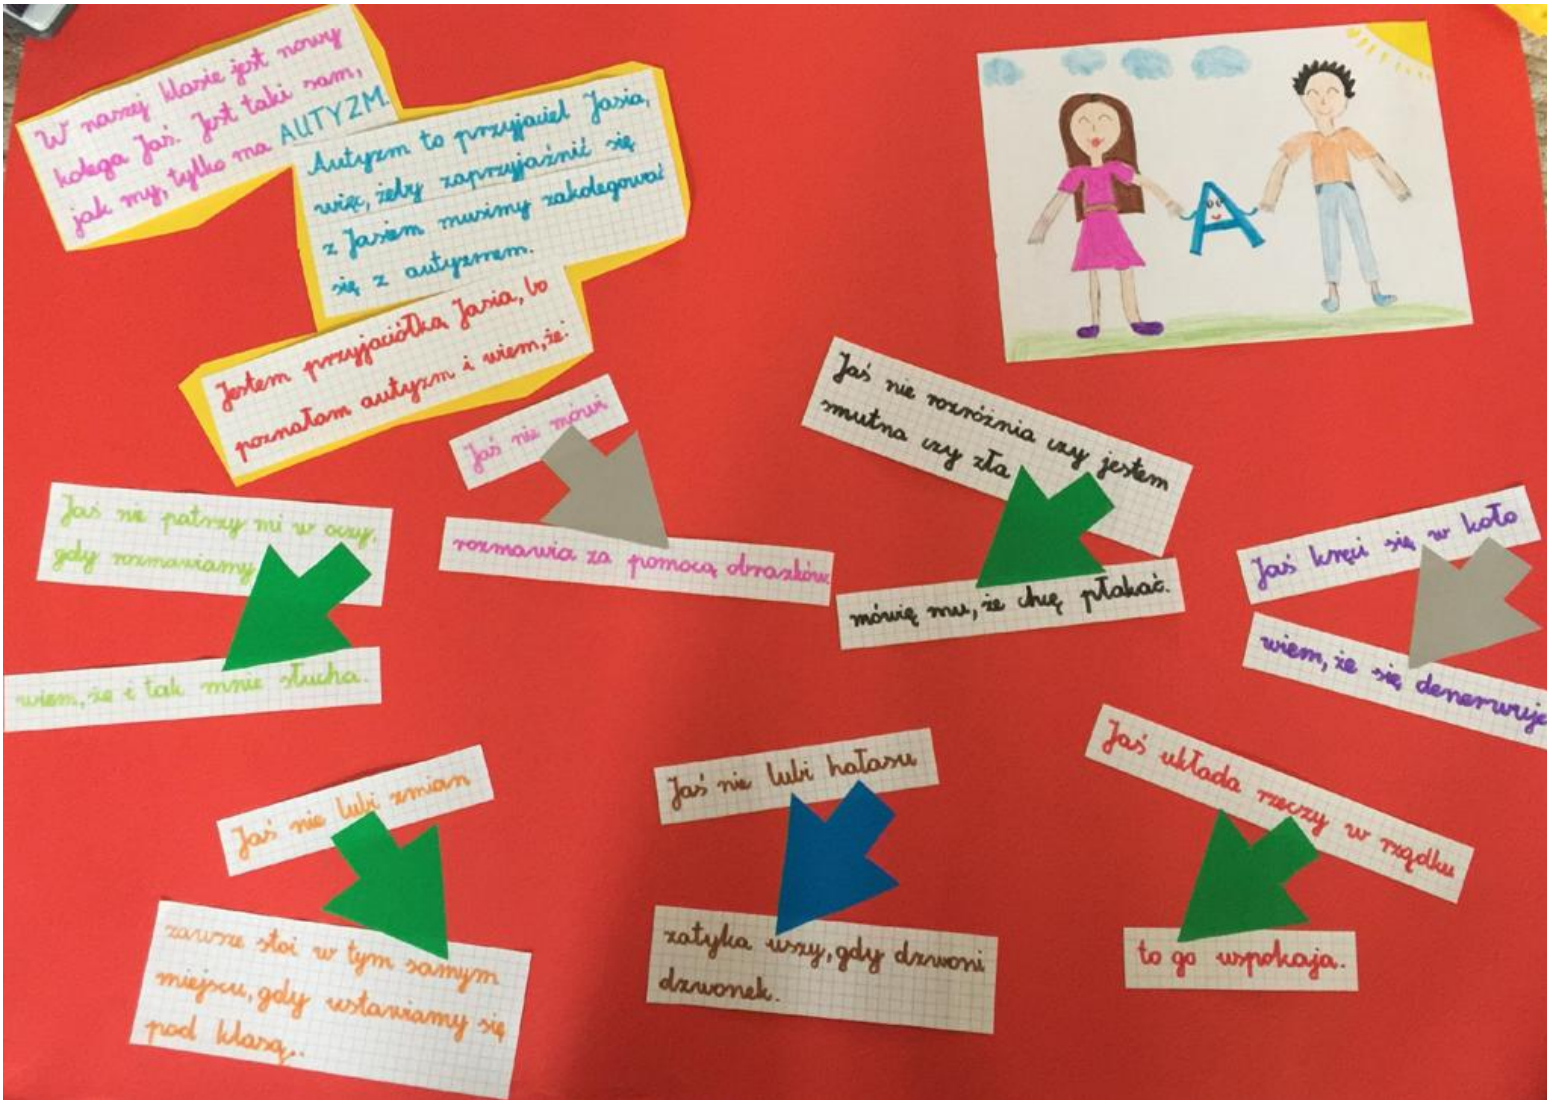 W naszej klasie jest nowy
kolega Jaś. Jest taki sam,
jak my, tylko ma AUTYZM.
Autyzm to przyjaciel Jasia,
więc, żeby zaprzyjaźnić się
z Jasiem musimy zakolegować
się z autyzmem.
Jestem przyjaciółką Jasia, bo
poznałam autyzm i wiem, że:
Jaś nie mówi
rozmawia za pomocą obrazków
Jaś nie rozróżnia czy jestem
smutna czy zła
mówię mu, że chcę płakać.
Jaś nie patrzy mi w oczy,
gdy rozmawiamy
wiem, że i tak mnie słucha.
Jaś kręci się w koło
wiem, że się denerwuje
Jaś nie lubi zmian
zawsze stoi w tym samym
miejscu, gdy ustawiamy się
pod klasą..
Jaś nie lubi hałasu
zatyka uszy, gdy dzwoni
dzwonek.
Jaś układa rzeczy w rządku
to go uspokaja.
A